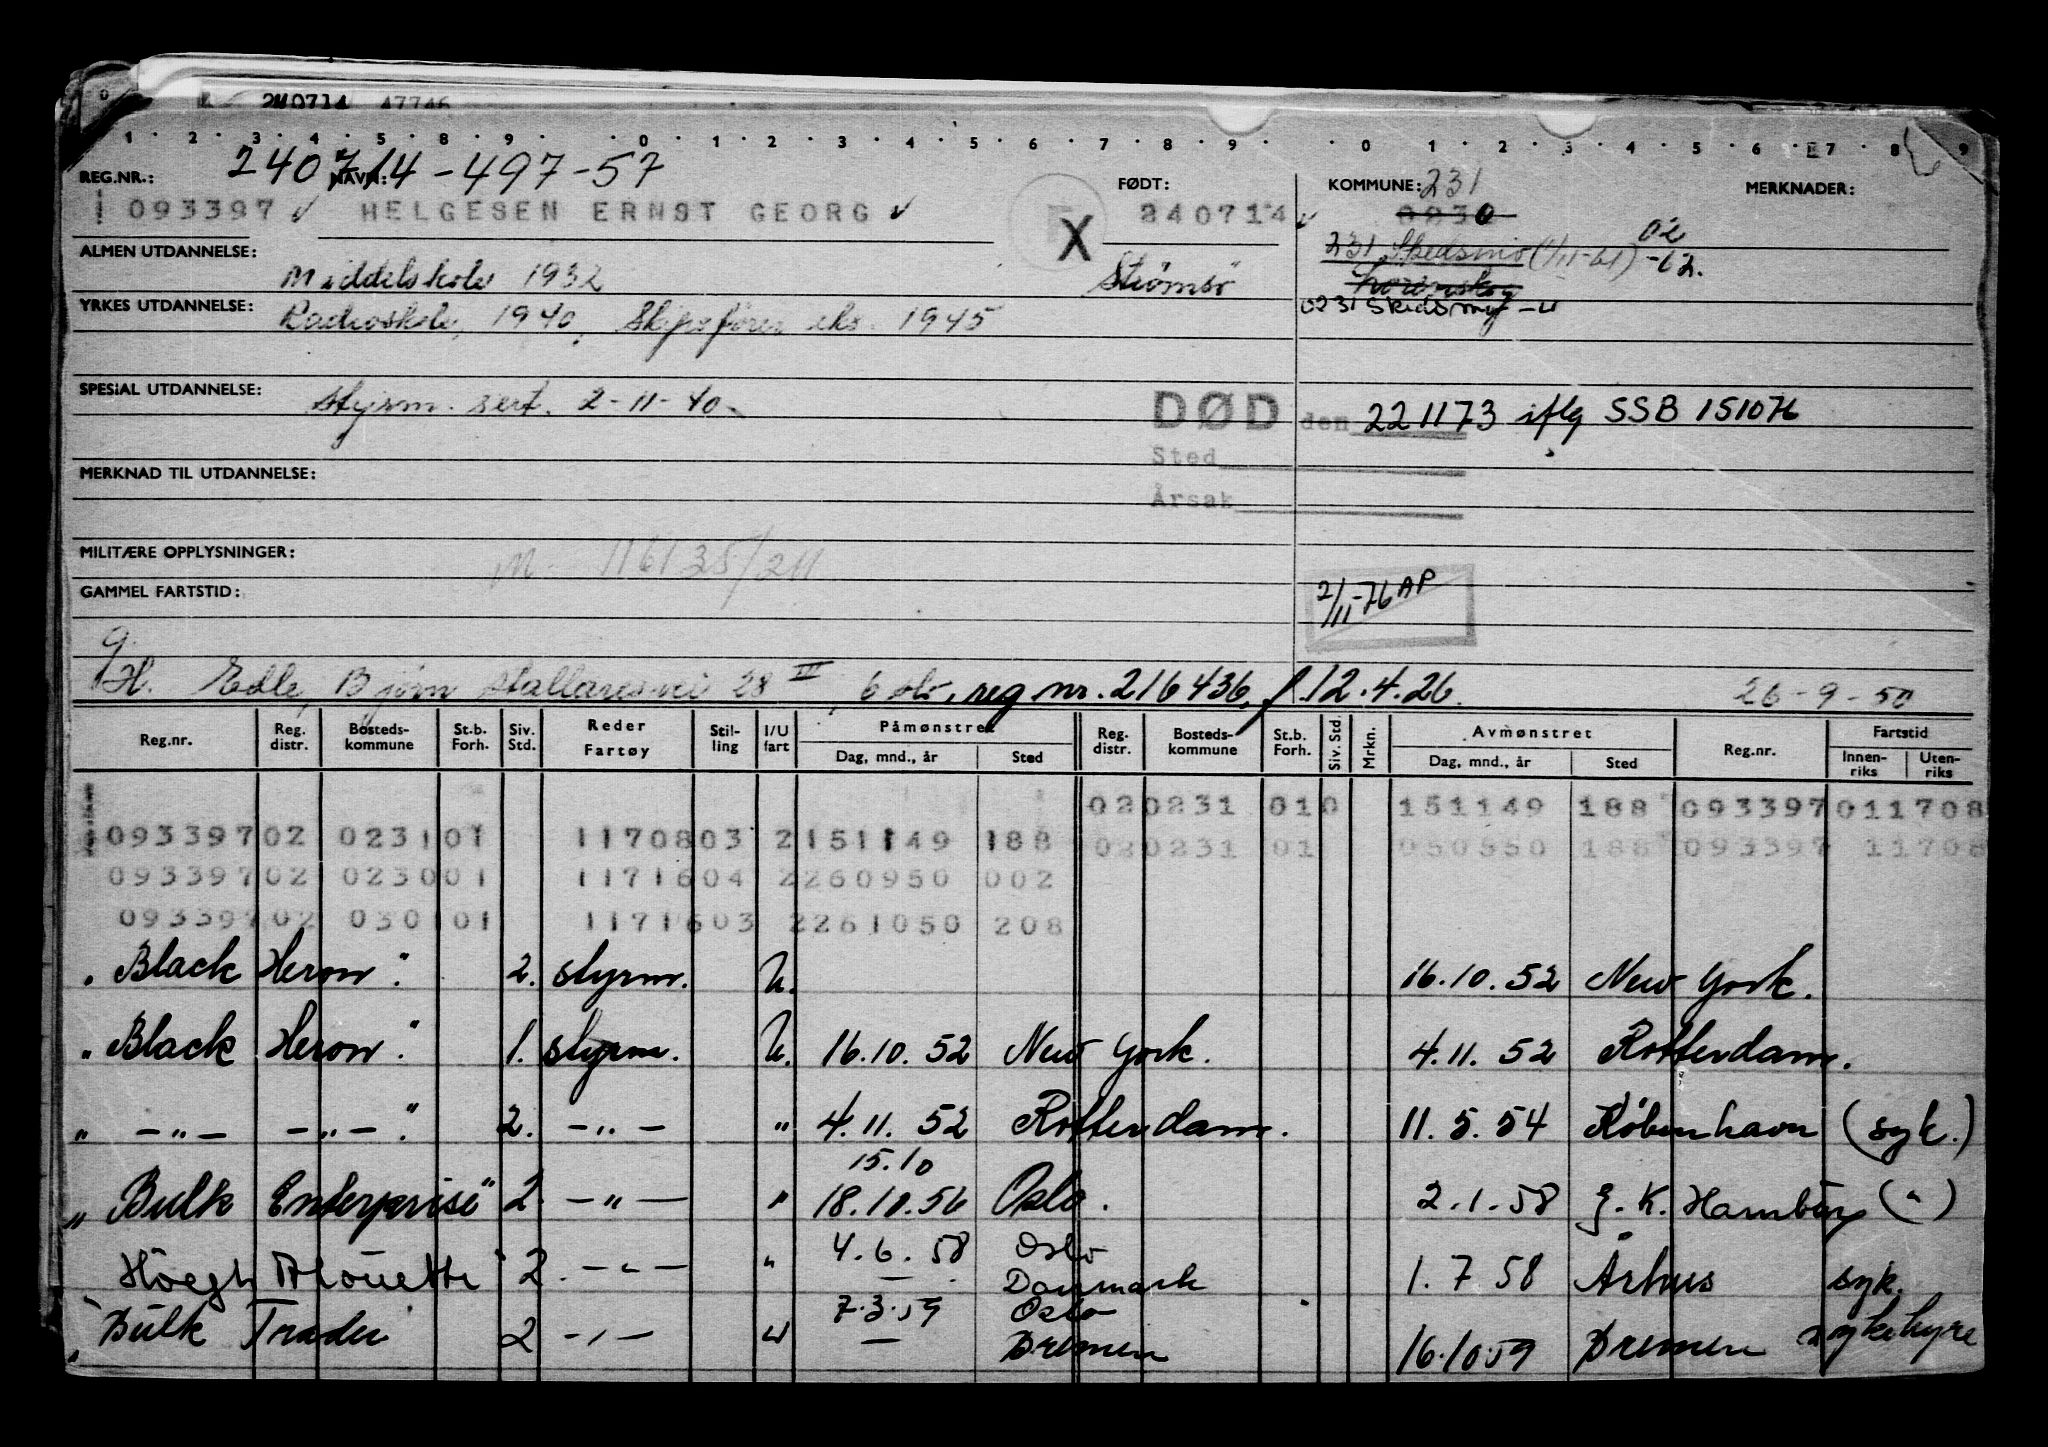 240714 47746
1 2 3 4 5 6 7 8 9 0 1 2 3 4 5 6 7 8 9 0 1 2 3 4 5 6 7 8 9
240714-497-57
REG.NR.: NAVN: FØDT: KOMMUNE: 231 MERKNADER:
093397 ✓ HELGESEN ERNST GEORG ✓ X 240714 ✓ 0230
ALMEN UTDANNELSE: Middelskole 1932 Strømsø 231 Skedsmo (1/11-61) 02-62.
Lørenskog
YRKES UTDANNELSE: Radioskole, 1940, Skipsfører eks. 1945 0231 Skedsmo
SPESIAL UTDANNELSE: Styrm. sert. 2-11-40. DØD den 221173 iflg SSB 151076
Sted
MERKNAD TIL UTDANNELSE:
Årsak
MILITÆRE OPPLYSNINGER: M. 116135/211
GAMMEL FARTSTID: 2/11-76 AP
g.
H. Edle, Bjørn Stallaresvei 28 III, Oslo, reg nr. 216436, f. 12.4.26. 26-9-50
Reg.nr. Reg. distr. Bosteds-kommune St.b. Forh. Siv. Std. Reder Fartøy Stil-ling I/U fart Påmønstret Dag, mnd., år Sted Reg. distr. Bosteds-kommune St.b. Forh. Siv. Std. Mrkn. Avmønstret Dag, mnd., år Sted Reg.nr. Fartstid Innen-riks Uten-riks
020231 010 151149 188 093397 011708
093397 02 0231 01 1170803 2 151149 188 020231 01 050550 188 093397 11708
093397 02 0230 01 1171604 2 260950 002
093397 02 0301 01 1171603 2 261050 208
„Black Heron". 2. styrm. U. 16.10.52 New York.
„Black Heron". 1. styrm. U. 16.10.52 New York. 4.11.52 Rotterdam.
„ -"- -"-". 2. -"- " 4.11.52 Rotterdam. 11.5.54 København (syk.)
15.10
„Bulk Enterprise" 2. -"- " 18.10.56 Oslo. 2.1.58 G.K. Hamburg (")
4.6.58 Oslo
Höegh Silhouette" 2. -"- " — Danmark 1.7.58 Århus syk.
7.3.59 Oslo
„Bulk Trader 2 -"- U — Bremen 16.10.59 Bremen sykehyre